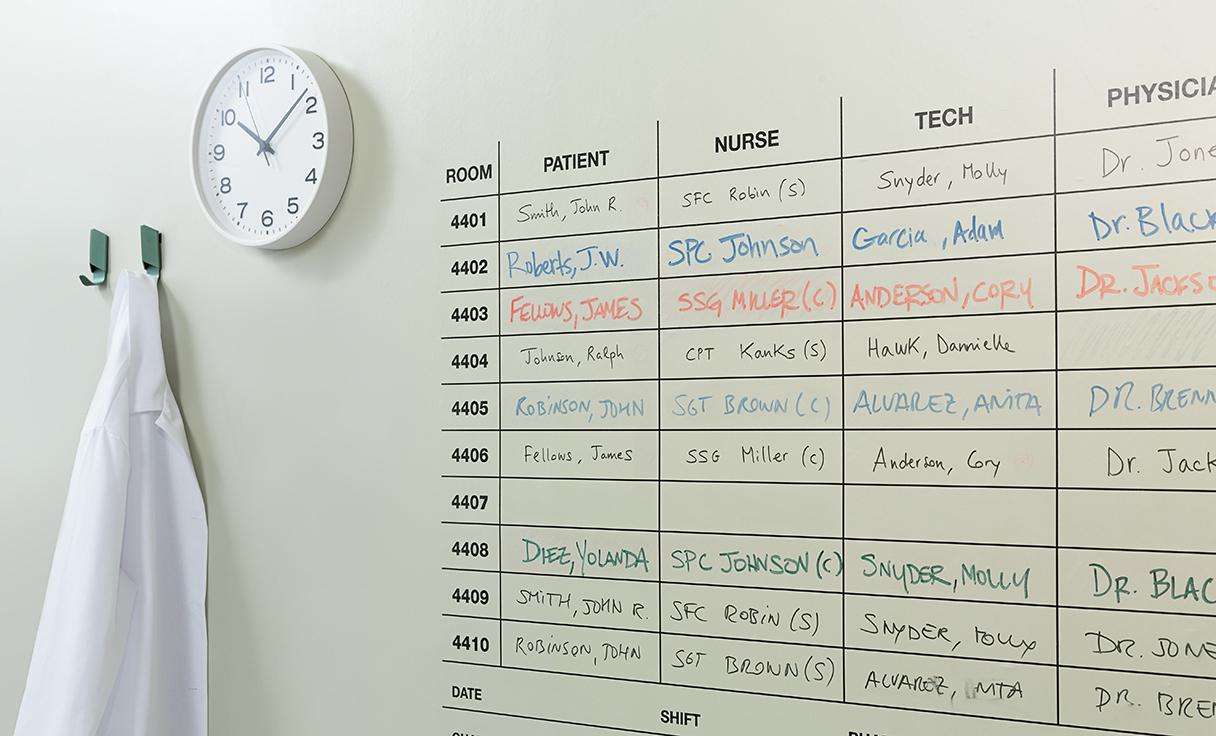 12
11 1
10 2
9 3
8 4
7 5
6
ROOM PATIENT NURSE TECH PHYSICIA
4401 Smith, John R. SFC Robin (S) Snyder, Molly Dr. Jone
4402 Roberts, J.W. SPC Johnson Garcia, Adam Dr. Black
4403 FELLOWS, JAMES SSG MILLER (C) ANDERSON, CORY DR. JACKSO
4404 Johnson, Ralph CPT Kanks (S) Hawk, Dannielle
4405 ROBINSON, JOHN SGT BROWN (C) ALVAREZ, ANITA DR. BRENN
4406 Fellows, James SSG Miller (C) Anderson, Cory Dr. Jack
4407
4408 DIEZ, YOLANDA SPC JOHNSON (C) SNYDER, MOLLY DR. BLAC
4409 SMITH, JOHN R. SFC ROBIN (S) SNYDER, MOLLY DR. JONE
4410 ROBINSON, JOHN SGT BROWN (S) ALVAREZ, DR. BRE
DATE SHIFT